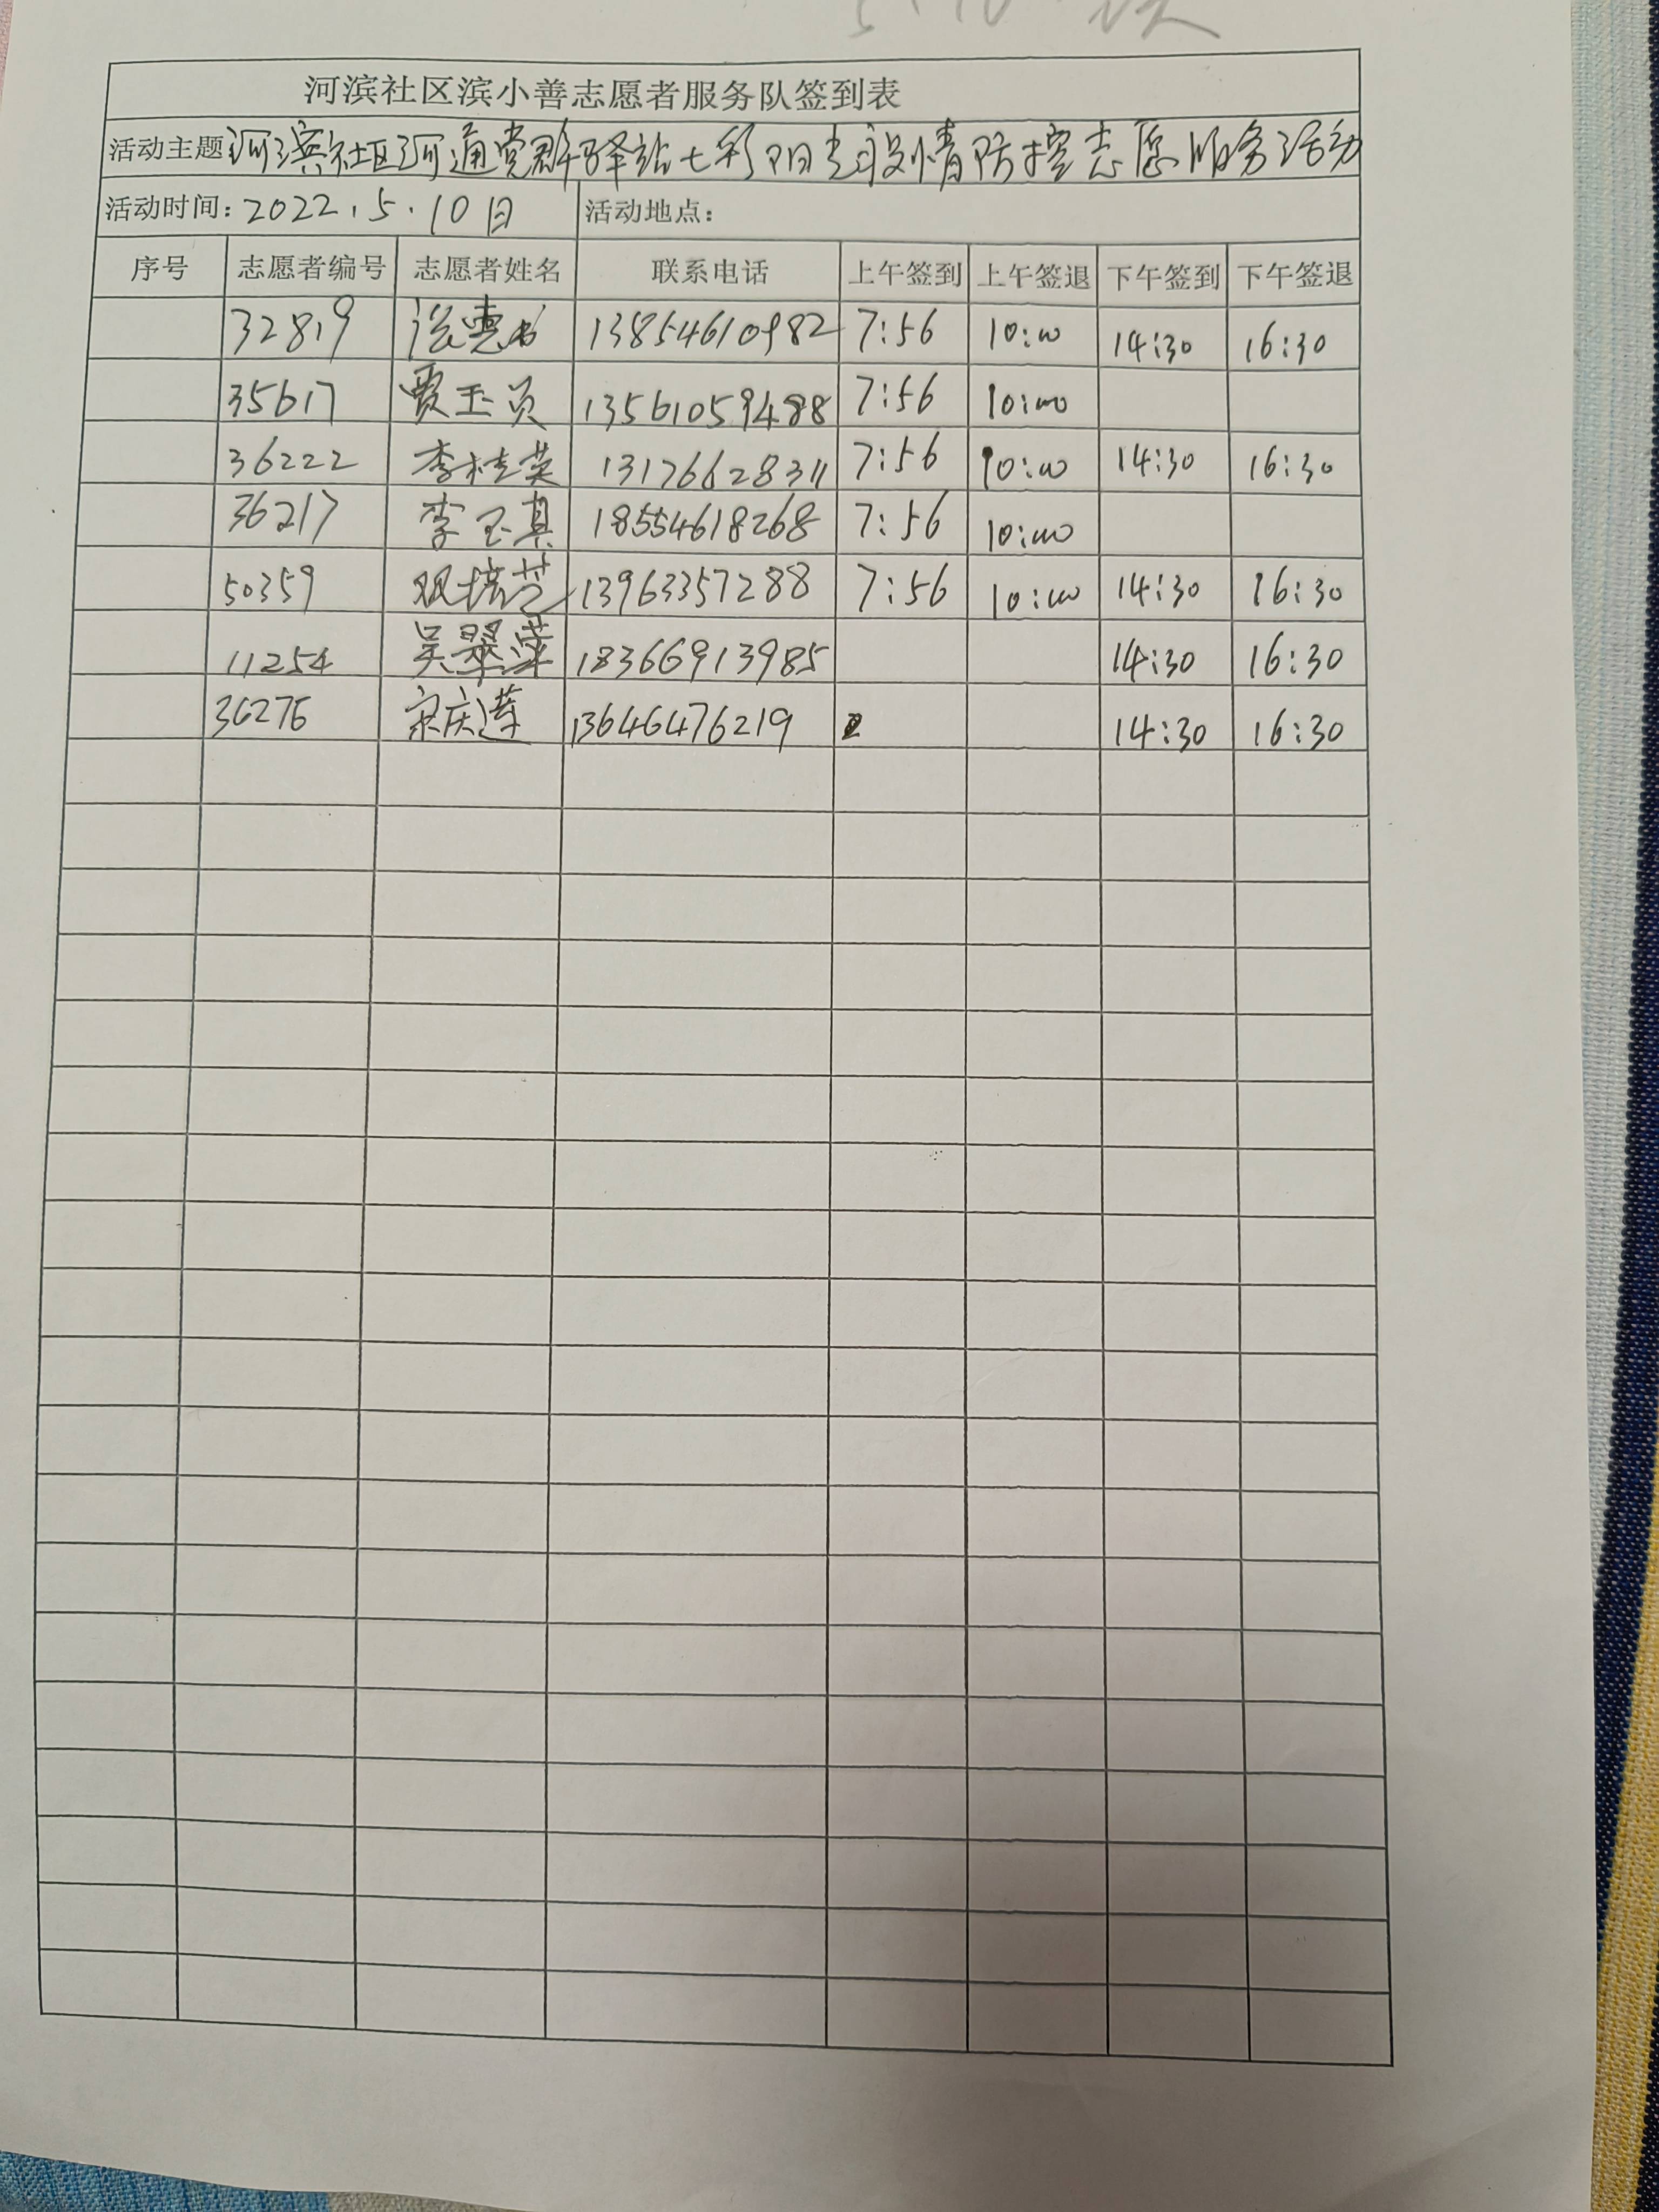 河滨社区滨小善志愿者服务队签到表
活动主题 河滨社区河通党群驿站七彩阳光疫情防控志愿服务活动
活动时间: 2022.5.10日 活动地点:
序号 志愿者编号 志愿者姓名 联系电话 上午签到 上午签退 下午签到 下午签退
32819 13854610982 7:56 10:00 14:30 16:30
35617 贾玉贞 13561059488 7:56 10:00
36222 李桂英 13176628311 7:56 10:00 14:30 16:30
36217 李玉真 18554618268 7:56 10:00
50359 13963357288 7:56 10:00 14:30 16:30
11254 吴翠莲 18366913985 14:30 16:30
36276 宋庆莲 13646476219 14:30 16:30